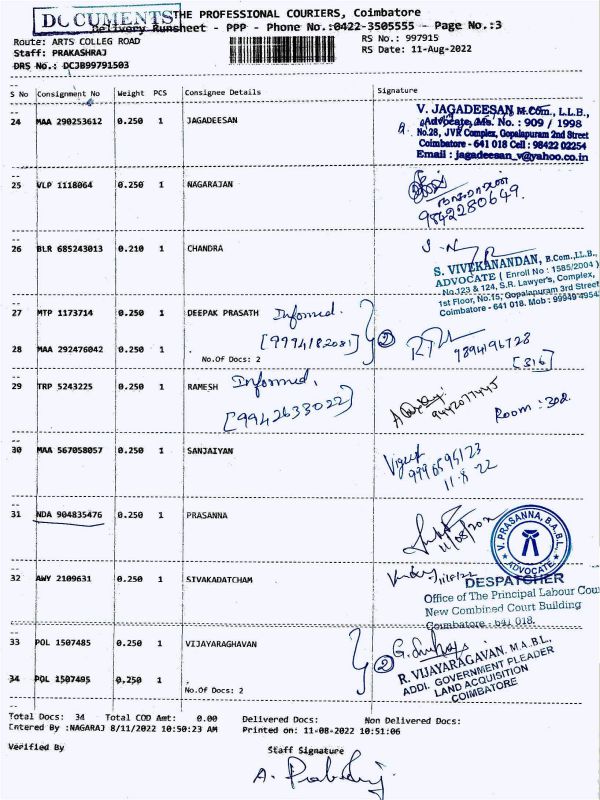 DOCUMENTS
THE PROFESSIONAL COURIERS, Coimbatore
Delivery Runsheet - PPP - Phone No.:0422-3505555 - Page No.:3
Route: ARTS COLLEG ROAD
RS No.: 997915
Staff: PRAKASHRAJ
RS Date: 11-Aug-2022
DRS No.: DCJB99791503
S No Consignment No Weight PCS Consignee Details Signature
24 MAA 290253612 0.250 1 JAGADEESAN
V. JAGADEESAN M.Com., L.L.B.,
Advocate, Ms. No. : 909 / 1998
No.28, JVR Complex, Gopalapuram 2nd Street
Coimbatore - 641 018 Cell : 98422 02254
Email : jagadeesan_v@yahoo.co.in
25 VLP 1118064 0.250 1 NAGARAJAN
9842280649.
26 BLR 685243013 0.210 1 CHANDRA
S. VIVEKANANDAN, B.Com.,LL.B.,
ADVOCATE ( Enroll No : 1585/2004 )
No.123 & 124, S.R. Lawyer's, Complex,
1st Floor, No.15, Gopalapuram 3rd Street
Coimbatore - 641 018. Mob : 99949 4954
27 MTP 1173714 0.250 1 DEEPAK PRASATH Informed.
[9994182081] 2
28 MAA 292476042 0.250 1 .
No.Of Docs: 2
9894196728
[316]
29 TRP 5243225 0.250 1 RAMESH Informed,
[9942633022]
9442077445
Room : 302.
30 MAA 567058057 0.250 1 SANJAIYAN
11.8.22
31 NDA 904835476 0.250 1 PRASANNA
V. PRASANNA, B.A.,B.L.,
ADVOCATE
32 AWY 2109631 0.250 1 SIVAKADATCHAM
DESPATCHER
Office of The Principal Labour Cou
New Combined Court Building
Coimbatore - 641 018.
33 POL 1507485 0.250 1 VIJAYARAGHAVAN
2
34 POL 1507495 0.250 1 .
No.Of Docs: 2
R. VIJAYARAGAVAN. M.A.,B.L.,
ADDI. GOVERNMENT PLEADER
LAND ACQUISITION
COIMBATORE
Total Docs: 34 Total COD Amt: 0.00 Delivered Docs: Non Delivered Docs:
Entered By :NAGARAJ 8/11/2022 10:50:23 AM Printed on: 11-08-2022 10:51:06
Verified By Staff Signature